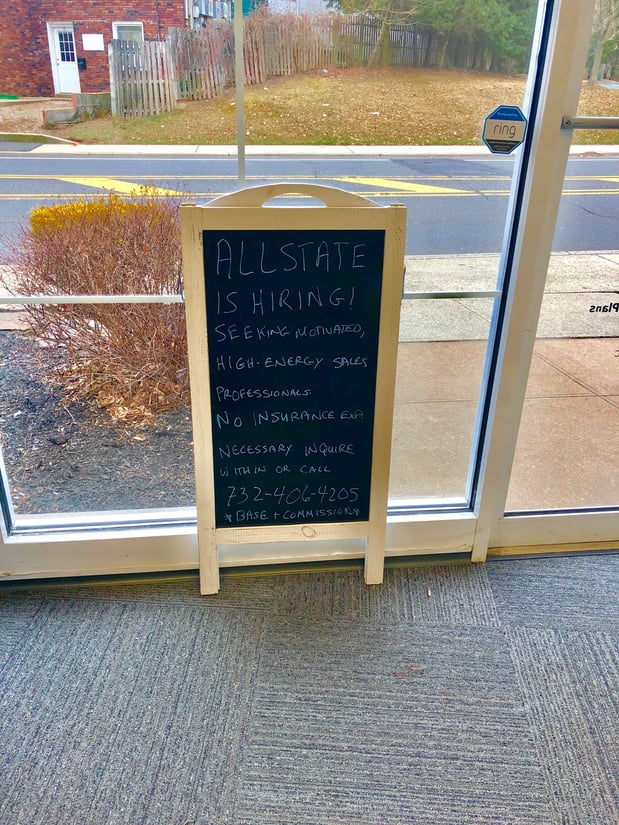 ring
ALLSTATE
IS HIRING!
SEEKING MOTIVATED,
HIGH-ENERGY SALES
PROFESSIONALS
NO INSURANCE EXP.
NECESSARY INQUIRE
WITHIN OR CALL
732-406-4205
*BASE + COMMISSION*
Plans